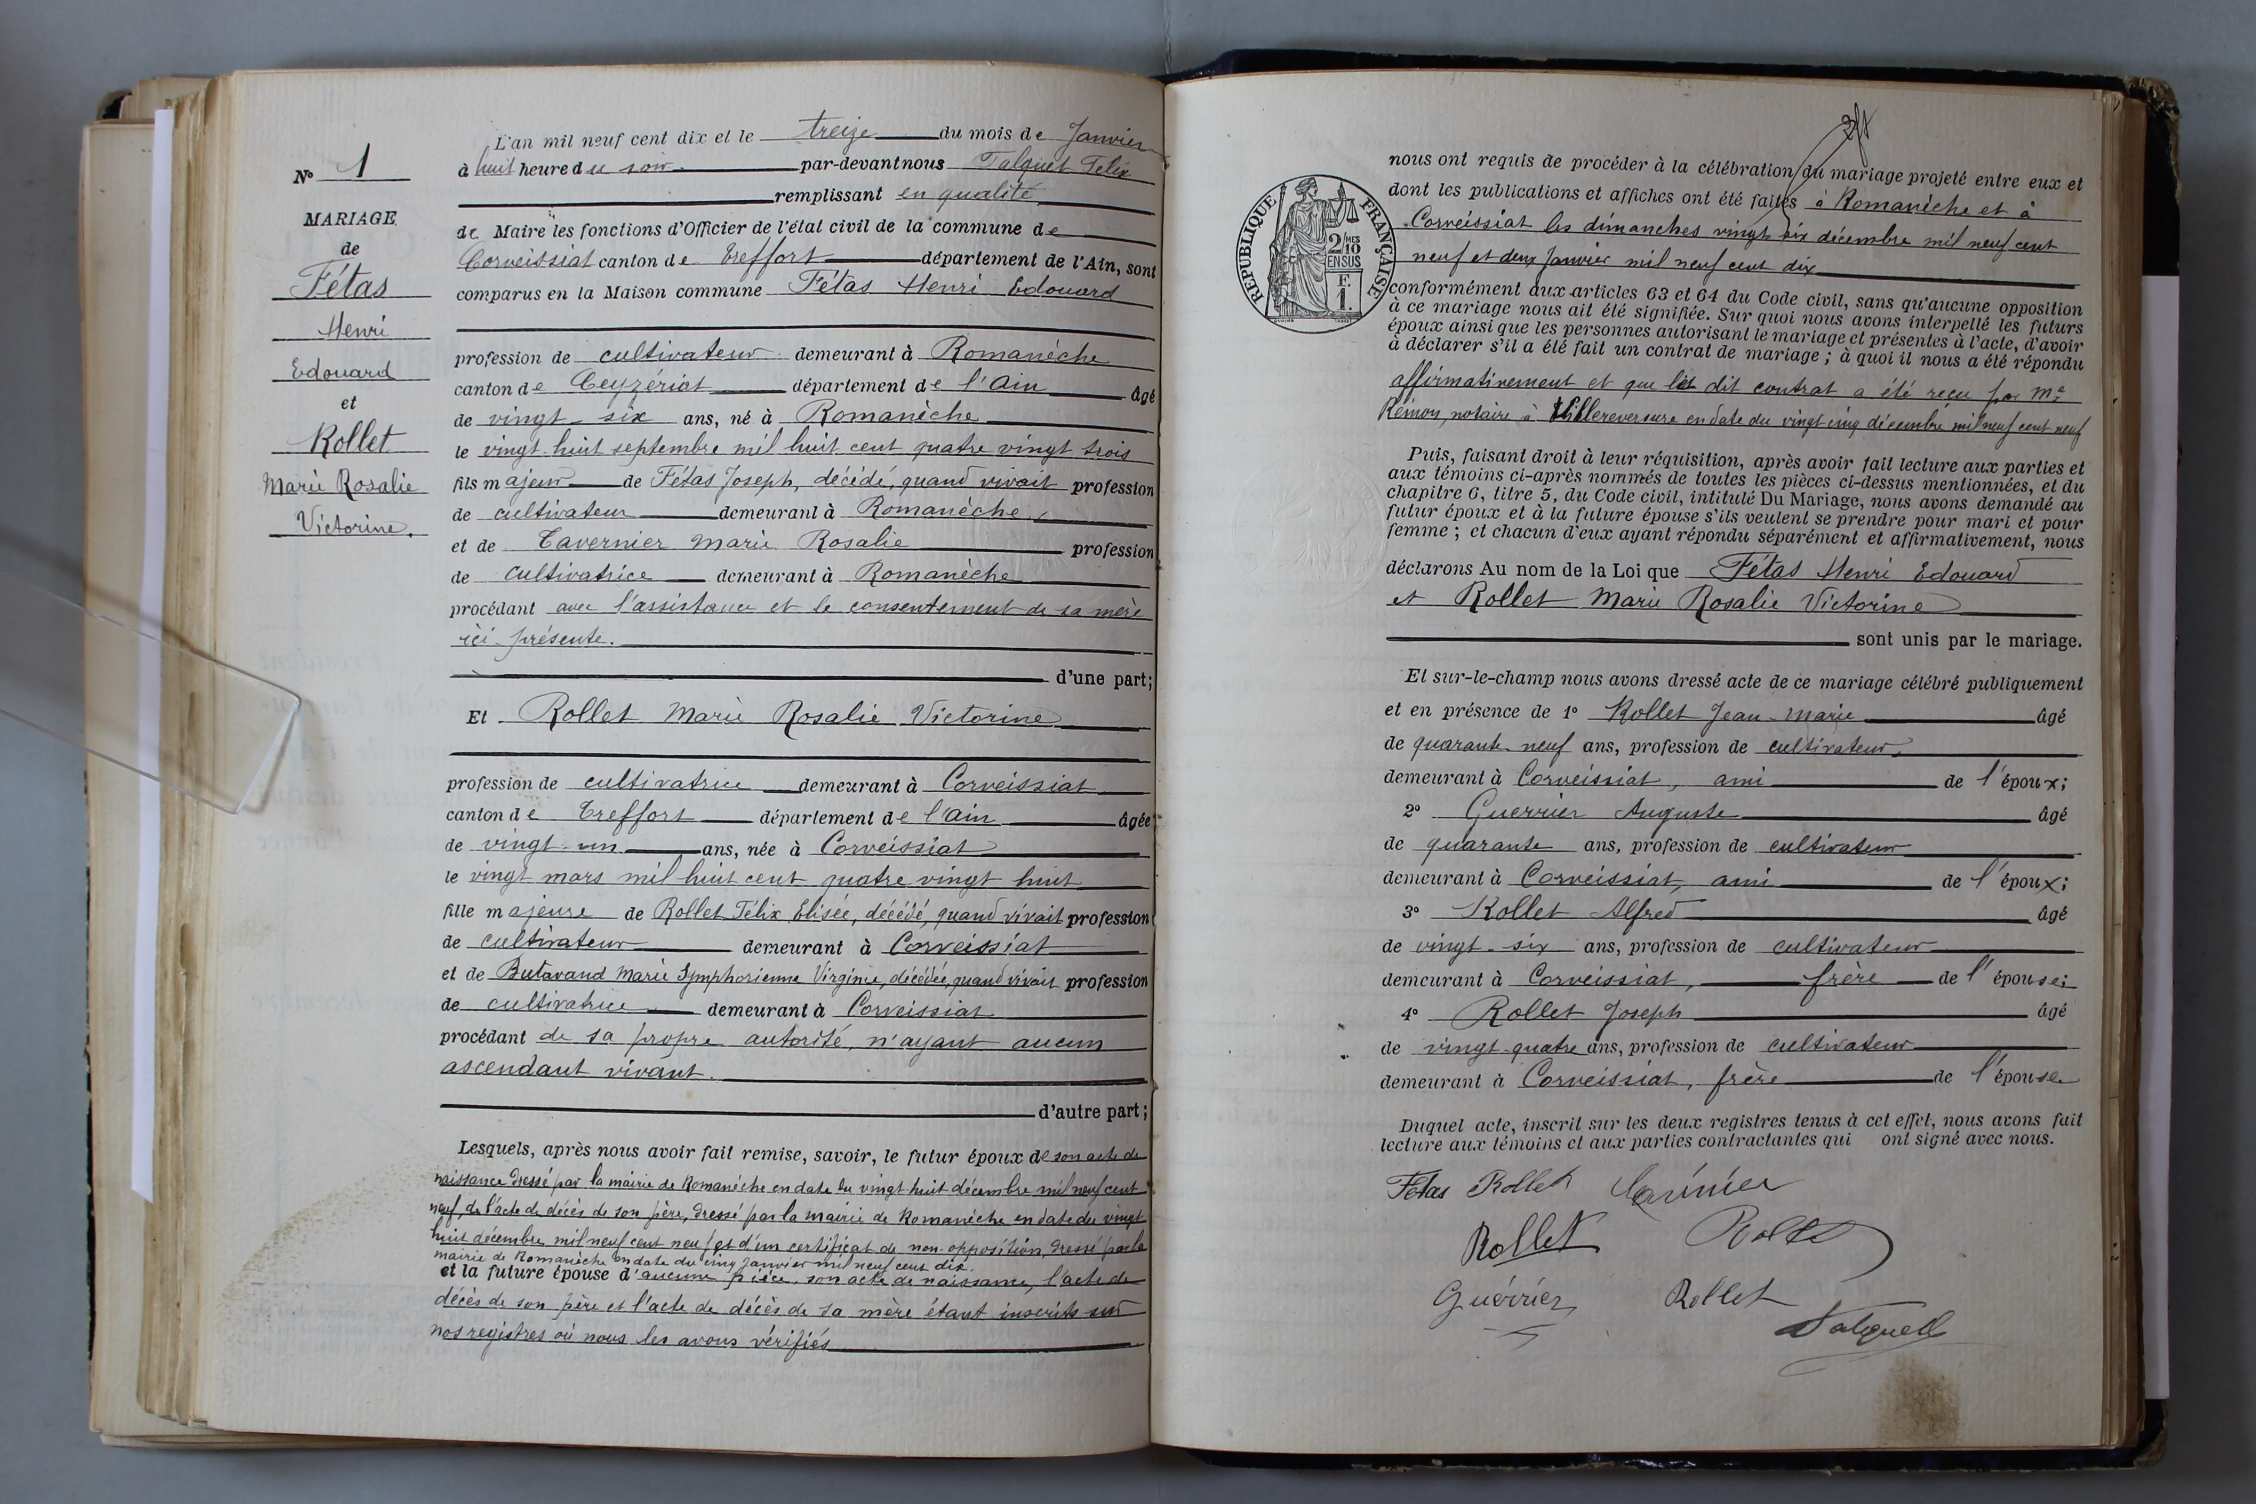 N° 1
MARIAGE
de
Fétas
Henri
Edouard
et
Rollet
Marie Rosalie
Victorine.
L'an mil neuf cent dix et le treize du mois de Janvier
à huit heure du soir par-devant nous Falquet Félix
remplissant en qualité
de Maire les fonctions d'Officier de l'état civil de la commune de
Corveissiat canton de Treffort département de l'Ain, sont
comparus en la Maison commune Fétas Henri Edouard
profession de cultivateur demeurant à Romanèche
canton de Ceyzériat département de l'Ain âgé
de vingt-six ans, né à Romanèche
le vingt huit septembre mil huit cent quatre vingt trois
fils majeur de Fétas Joseph, décédé, quand vivait profession
de cultivateur demeurant à Romanèche,
et de Tavernier Marie Rosalie profession
de cultivatrice demeurant à Romanèche
procédant avec l'assistance et le consentement de sa mère
ici présente.
d'une part;
Et Rollet Marie Rosalie Victorine
profession de cultivatrice demeurant à Corveissiat
canton de Treffort département de l'ain âgée
de vingt-un ans, née à Corveissiat
le vingt mars mil huit cent quatre vingt huit
fille majeure de Rollet Félix Elisée, décédé, quand vivait profession
de cultivateur demeurant à Corveissiat
et de Butavand Marie Symphorienne Virginie, décédée, quand vivait profession
de cultivatrice demeurant à Corveissiat
procédant de sa propre autorité, n'ayant aucun
ascendant vivant.
d'autre part;
Lesquels, après nous avoir fait remise, savoir, le futur époux de son acte de
naissance dressé par la mairie de Romanèche en date du vingt huit décembre mil neuf cent
neuf, de l'acte de décès de son père, dressé par la mairie de Romanèche en date du vingt
huit décembre mil neuf cent neuf et d'un certificat de non-opposition, dressé par la
mairie de Romanèche en date du cinq Janvier mil neuf cent dix.
et la future épouse d'aucune pièce, son acte de naissance, l'acte de
décès de son père et l'acte de décès de sa mère étant inscrits sur
nos registres où nous les avons vérifiés
nous ont requis de procéder à la célébration du mariage projeté entre eux et
dont les publications et affiches ont été faites à Romanèche et à
Corveissiat les dimanches vingt six décembre mil neuf cent
neuf et deux Janvier mil neuf cent dix
RÉPUBLIQUE FRANÇAISE
2/10 MES
EN SUS
F.
1.
conformément aux articles 63 et 64 du Code civil, sans qu'aucune opposition
à ce mariage nous ait été signifiée. Sur quoi nous avons interpellé les futurs
époux ainsi que les personnes autorisant le mariage et présentes à l'acte, d'avoir
à déclarer s'il a été fait un contrat de mariage ; à quoi il nous a été répondu
affirmativement et que le dit contrat a été reçu par Me
notaire à Villereversure en date du vingt cinq décembre mil neuf cent neuf
Puis, faisant droit à leur réquisition, après avoir fait lecture aux parties et
aux témoins ci-après nommés de toutes les pièces ci-dessus mentionnées, et du
chapitre 6, titre 5, du Code civil, intitulé Du Mariage, nous avons demandé au
futur époux et à la future épouse s'ils veulent se prendre pour mari et pour
femme ; et chacun d'eux ayant répondu séparément et affirmativement, nous
déclarons Au nom de la Loi que Fétas Henri Edouard
et Rollet Marie Rosalie Victorine
sont unis par le mariage.
Et sur-le-champ nous avons dressé acte de ce mariage célébré publiquement
et en présence de 1° Rollet Jean-Marie âgé
de quarante-neuf ans, profession de cultivateur,
demeurant à Corveissiat, ami de l'époux;
2° Guerrier Auguste âgé
de quarante ans, profession de cultivateur
demeurant à Corveissiat, ami de l'époux;
3° Rollet Alfred âgé
de vingt-six ans, profession de cultivateur
demeurant à Corveissiat, frère de l'épouse;
4° Rollet Joseph âgé
de vingt-quatre ans, profession de cultivateur
demeurant à Corveissiat, frère de l'épouse
Duquel acte, inscrit sur les deux registres tenus à cet effet, nous avons fait
lecture aux témoins et aux parties contractantes qui ont signé avec nous.
Fétas Rollet
Rollet
Guérrier Rollet